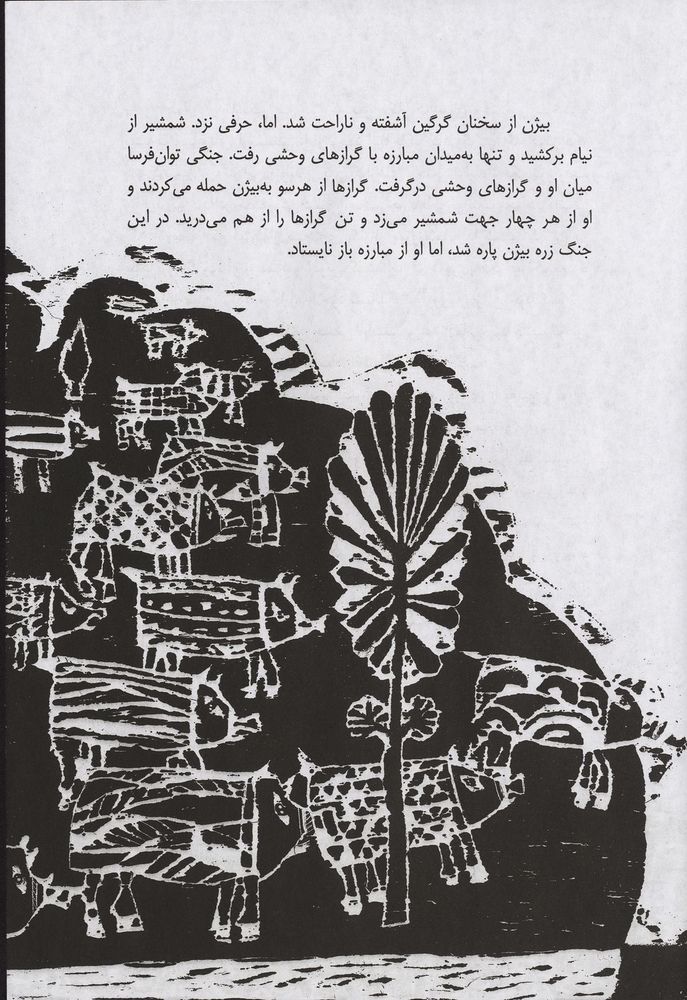 بیژن از سخنان گرگین آشفته و ناراحت شد. اما، حرفی نزد. شمشیر از
نیام برکشید و تنها به‌میدان مبارزه با گرازهای وحشی رفت. جنگی توان‌فرسا
میان او و گرازهای وحشی درگرفت. گرازها از هرسو به‌بیژن حمله می‌کردند و
او از هر چهار جهت شمشیر می‌زد و تن گرازها را از هم می‌درید. در این
جنگ زره بیژن پاره شد، اما او از مبارزه باز نایستاد.